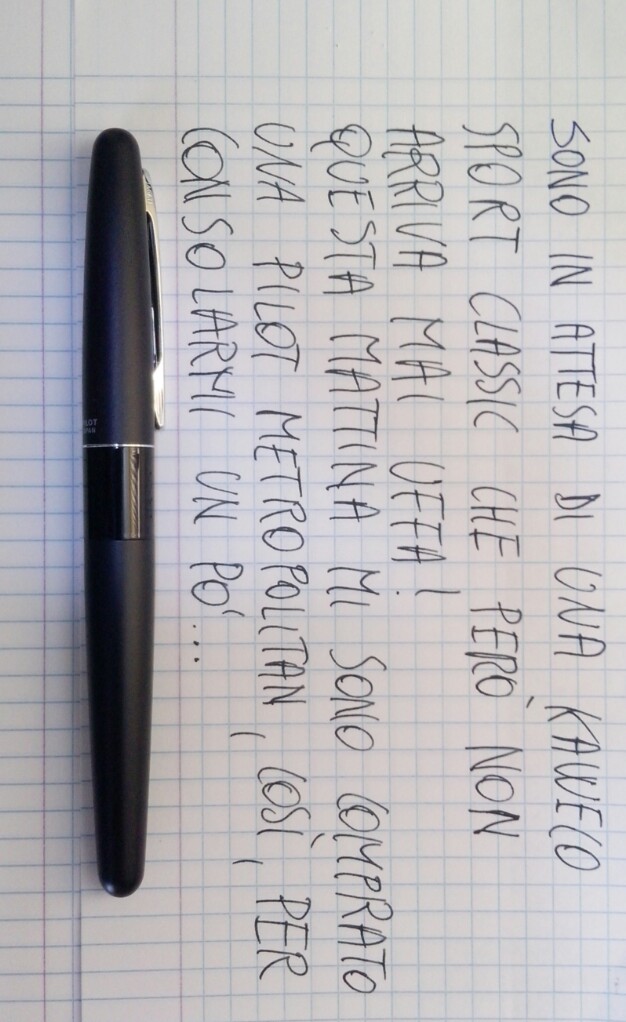 SONO IN ATTESA DI UNA KAWECO
SPORT CLASSIC CHE PERÒ NON
ARRIVA MAI UFFA!
QUESTA MATTINA MI SONO COMPRATO
UNA PILOT METROPOLITAN, COSÌ, PER
CONSOLARMI UN PO'...